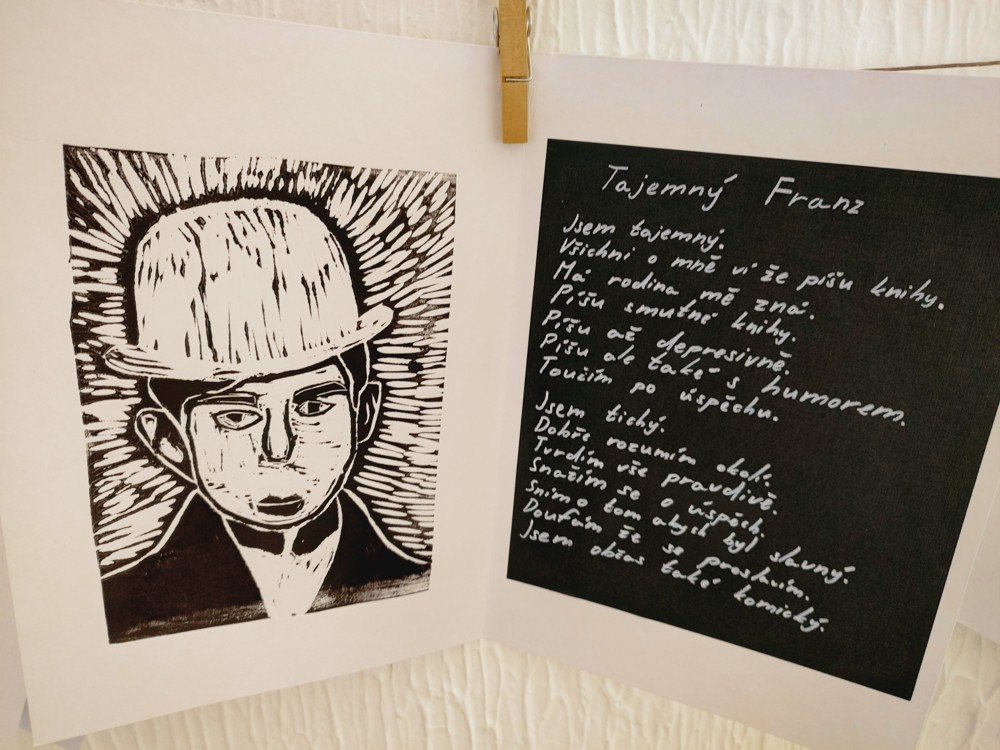 Tajemný Franz
Jsem tajemný.
Všichni o mně ví že píšu knihy.
Má rodina mě zná.
Píšu smutné knihy.
Píšu až depresivně.
Píšu ale také s humorem.
Toužím po úspěchu.
Jsem tichý.
Dobře rozumím okolí.
Tvrdím vše pravdivě.
Snažím se o úspěch.
Sním o tom abych byl slavný.
Doufám že se proslavím.
Jsem občas také komický.